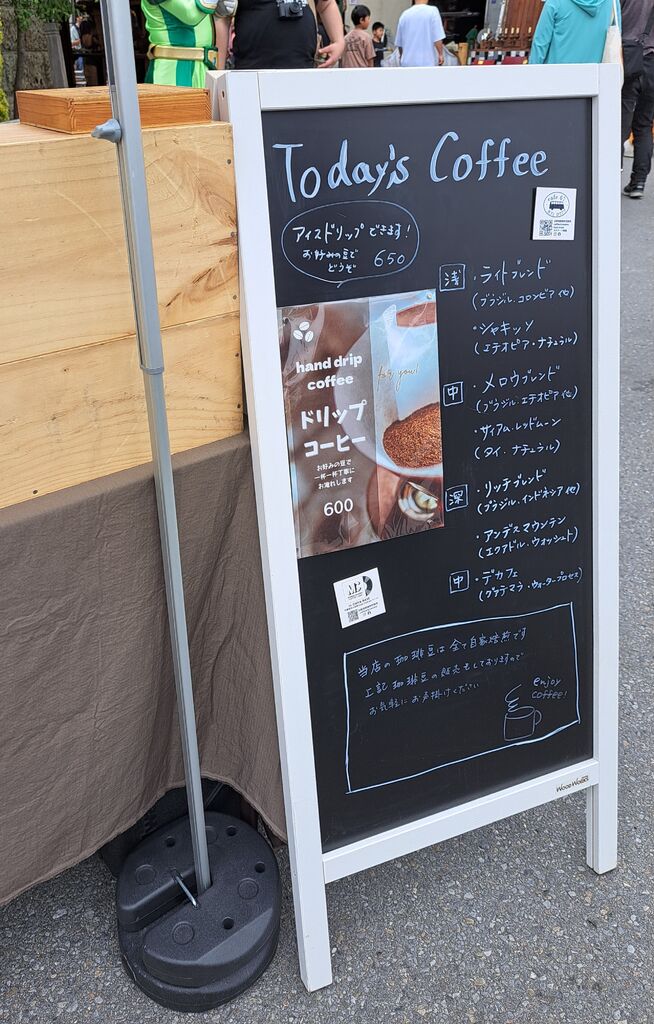 Today's Coffee
アイスドリップできます!
お好みの豆で
どうぞ 650
浅 ・ライトブレンド
(ブラジル、コロンビア他)
・シャキッソ
(エチオピア・ナチュラル)
中 ・メロウブレンド
(ブラジル、エチオピア他)
・サイアム・レッドムーン
(タイ、ナチュラル)
深 ・リッチブレンド
(ブラジル、インドネシア他)
・アンデスマウンテン
(エクアドル・ウォッシュト)
中 ・デカフェ
(グアテマラ・ウォータープロセス)
hand drip
coffee
for you!
ドリップ
コーヒー
お好みの豆で
一杯一杯丁寧に
お淹れします
600
当店の珈琲豆は全て自家焙煎です
上記珈琲豆の販売もしておりますので
お気軽にお声掛けください
enjoy
coffee!